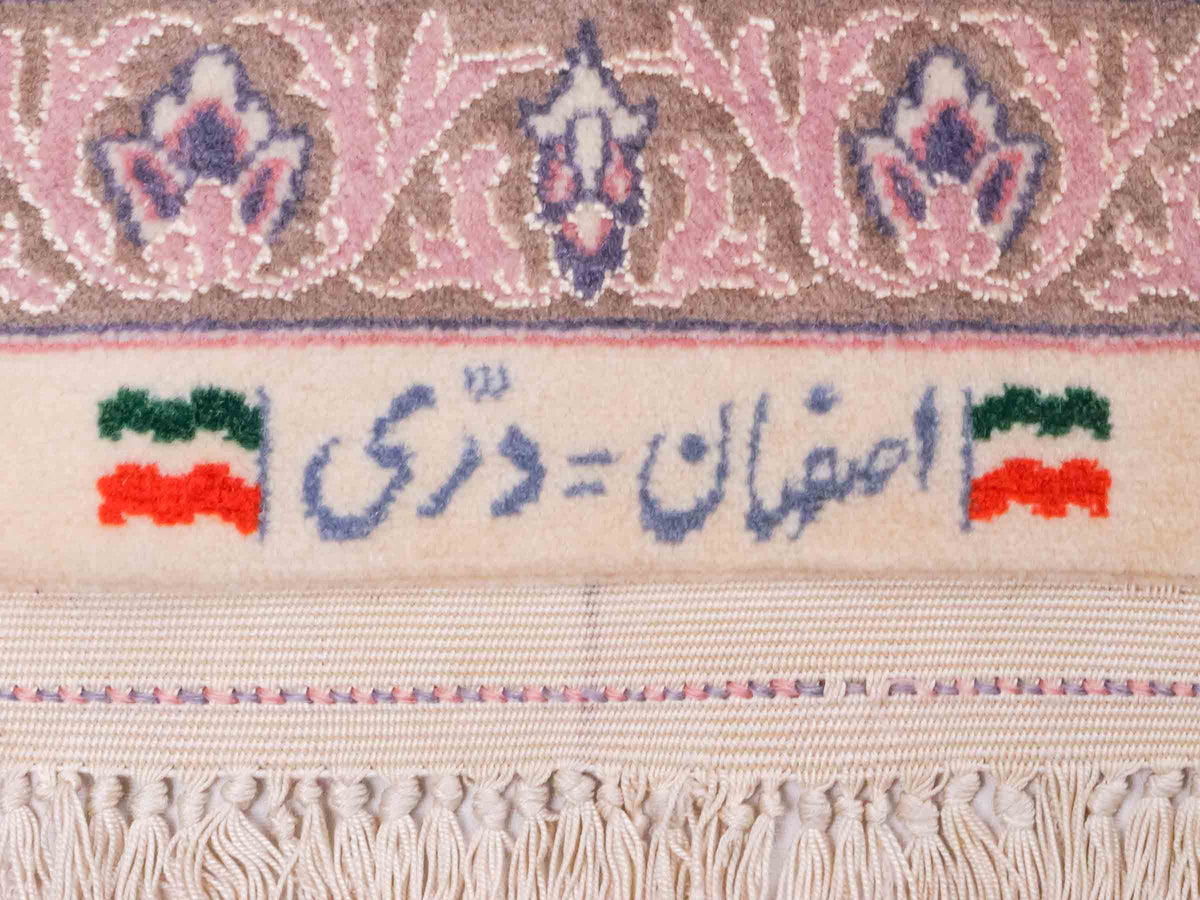 اصفهان = درّی